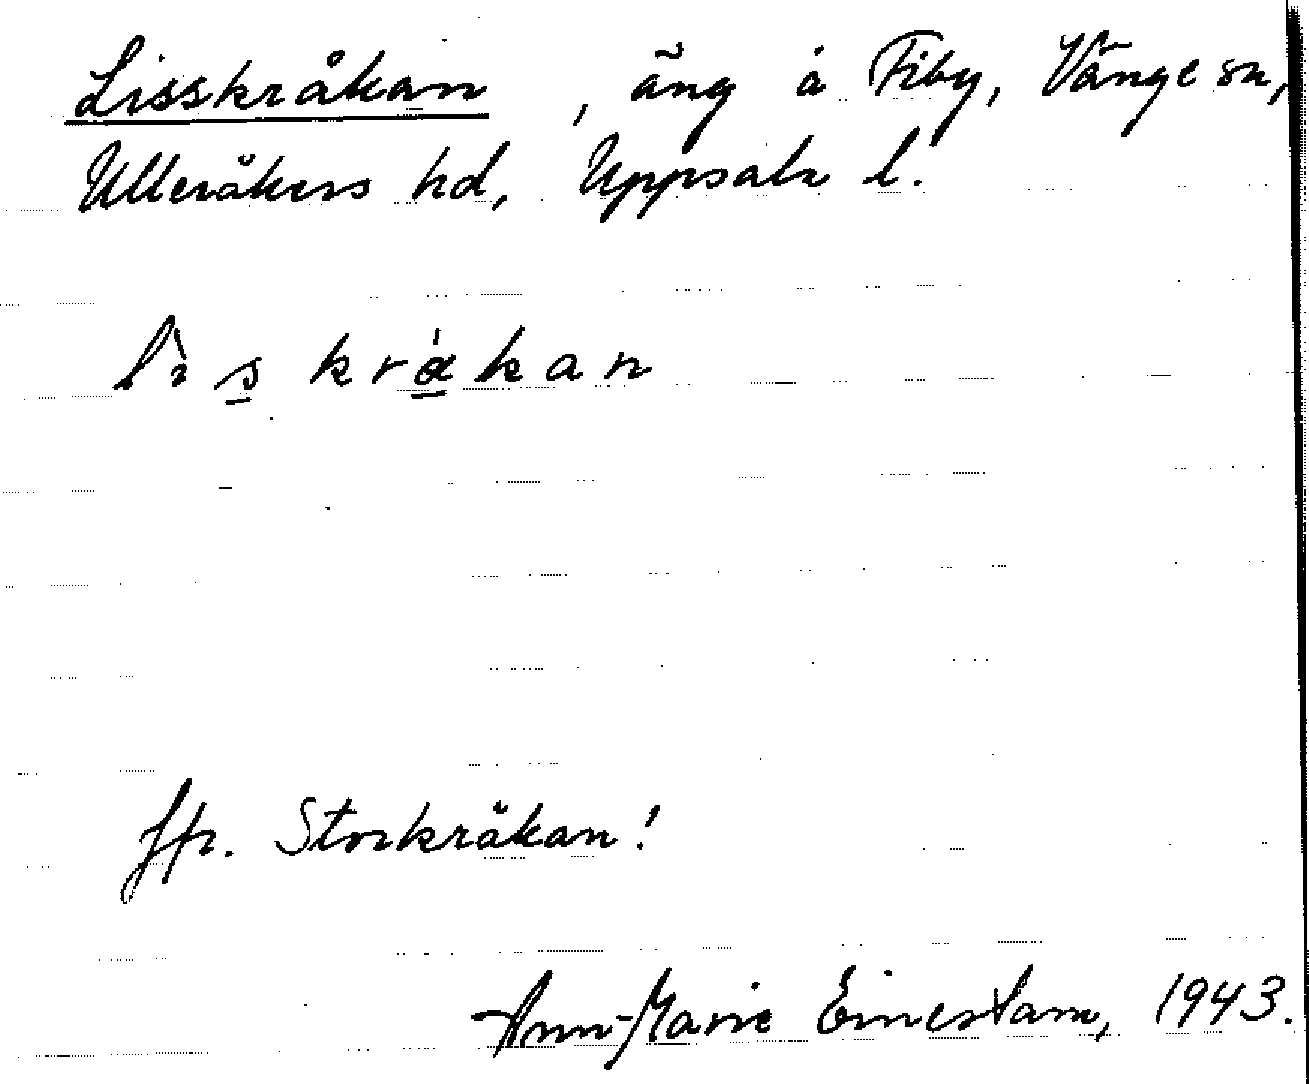 Lisskråkan, äng å Fiby, Vänge sn,
Ulleråkers hd, Uppsala l.
lìskrákan
Jfr. Storkråkan!
Ann-Marie Einerstam, 1943.